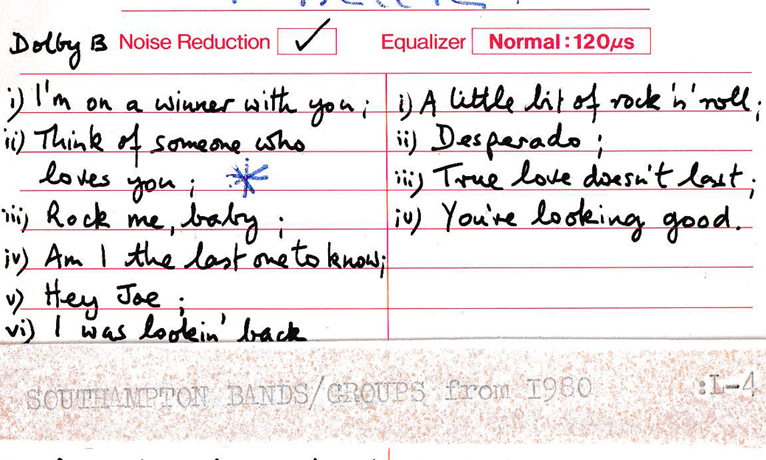 Dolby B Noise Reduction ✓ Equalizer Normal:120µs
i) I'm on a winner with you;
ii) Think of someone who
loves you; *
iii) Rock me, baby;
iv) Am I the last one to know;
v) Hey Joe;
vi) I was lookin' back
i) A little bit of rock 'n' roll;
ii) Desperado;
iii) True love doesn't last;
iv) You're looking good.
SOUTHAMPTON BANDS/GROUPS from I980 :L-4